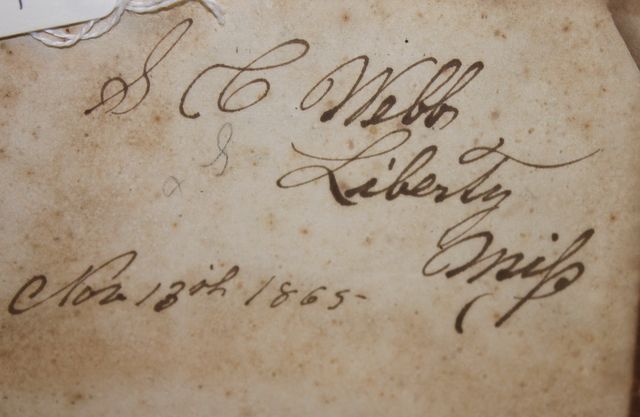 S C Webb
Liberty
Miſs
Nov 13th 1865